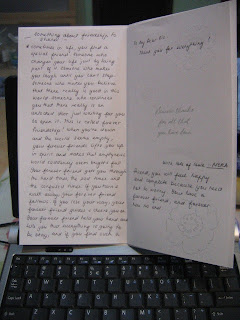 Something about friendship to
share!
Sometimes in life, you find a
special friend; someone who
changes your life just by being
part of it. Someone who makes
you laugh until you can't stop;
Someone who makes you believe
that there really is good in this
world. Someone who convinces
you that there really is an
unlocked door just waiting for you
to open it. This is called forever
Friendship! When you're down
and the world seems empty,
your forever friends lifts you up
in spirit and makes that empty
world suddenly seem bright and
Your forever friend gets you through
the hard times, the sad times, and
the confused times. If you turn &
walk away, your forever friend
follows. If you lose your way, your
forever friend guides &
Your forever friend holds your hand and
tells you that everything is going to
be okay, and if you find such a
To my dear
Thank you for everything!
Sincere thanks
for all that
you have done
friend, you will feel happy
and complete because you need
not to worry. You have a
forever friend, and forever
has no end.